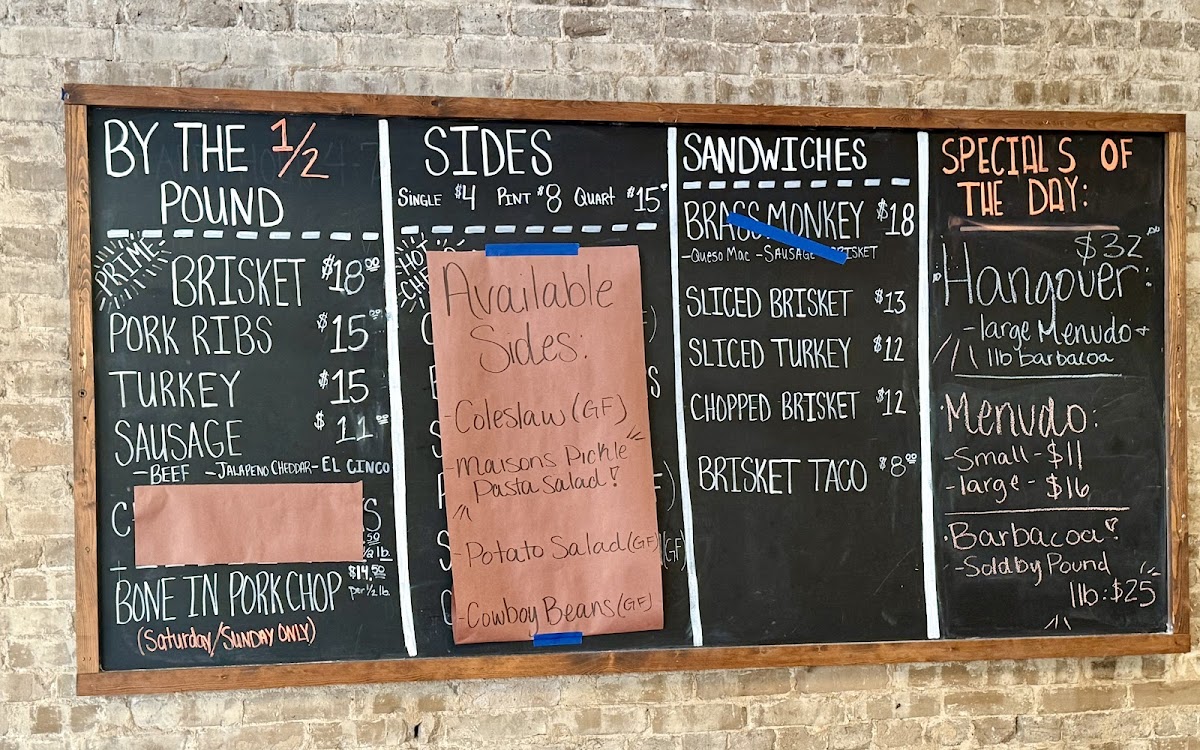 BY THE 1/2
POUND
PRIME
BRISKET $18.00
PORK RIBS $15.00
TURKEY $15
SAUSAGE $11.00
-BEEF -JALAPENO CHEDDAR -EL CINCO
BONE IN PORK CHOP $14.50 per 1/2 lb.
(Saturday/SUNDAY ONLY)
SIDES
SINGLE $4 PINT $8 QUART $15
HOT
Available
Sides:
-Coleslaw (GF)
-Maisons Pickle
Pasta Salad!
-Potato Salad (GF)
-Cowboy Beans (GF)
SANDWICHES
BRASS MONKEY $18
-QUESO MAC -SAUSAGE BRISKET
SLICED BRISKET $13
SLICED TURKEY $12
CHOPPED BRISKET $12
BRISKET TACO $8.00
SPECIALS OF
THE DAY:
$32
Hangover:
-large Menudo +
1lb barbacoa
Menudo:
-Small - $11
-large - $16
Barbacoa
-Sold by Pound
1lb: $25